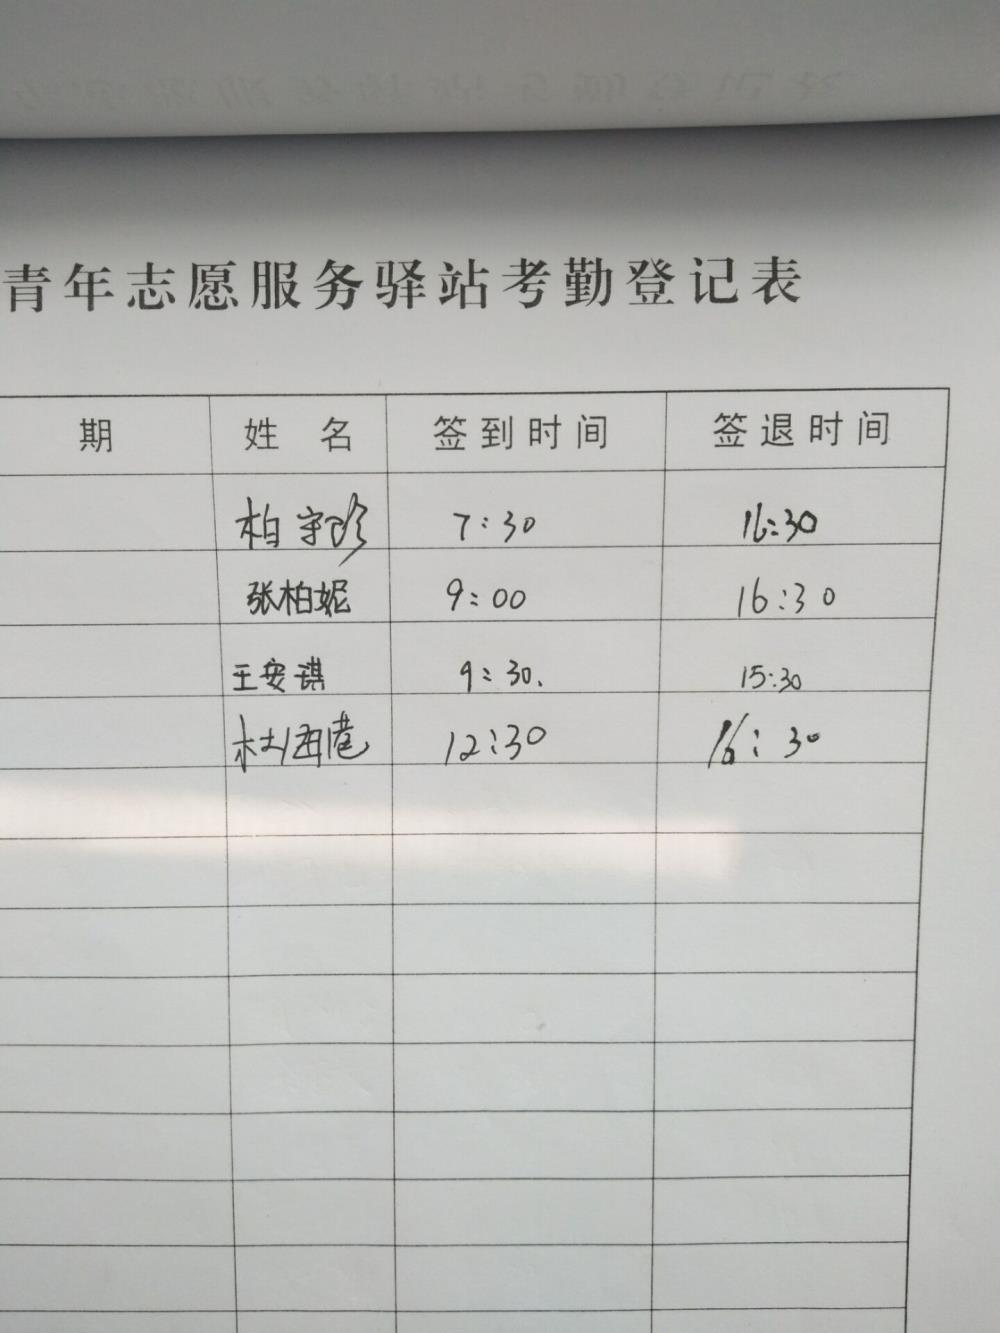 青年志愿服务驿站考勤登记表
期 姓名 签到时间 签退时间
柏宇珍 7:30 16:30
张柏妮 9:00 16:30
王安琪 9:30. 15:30
杜西苑 12:30 16:30